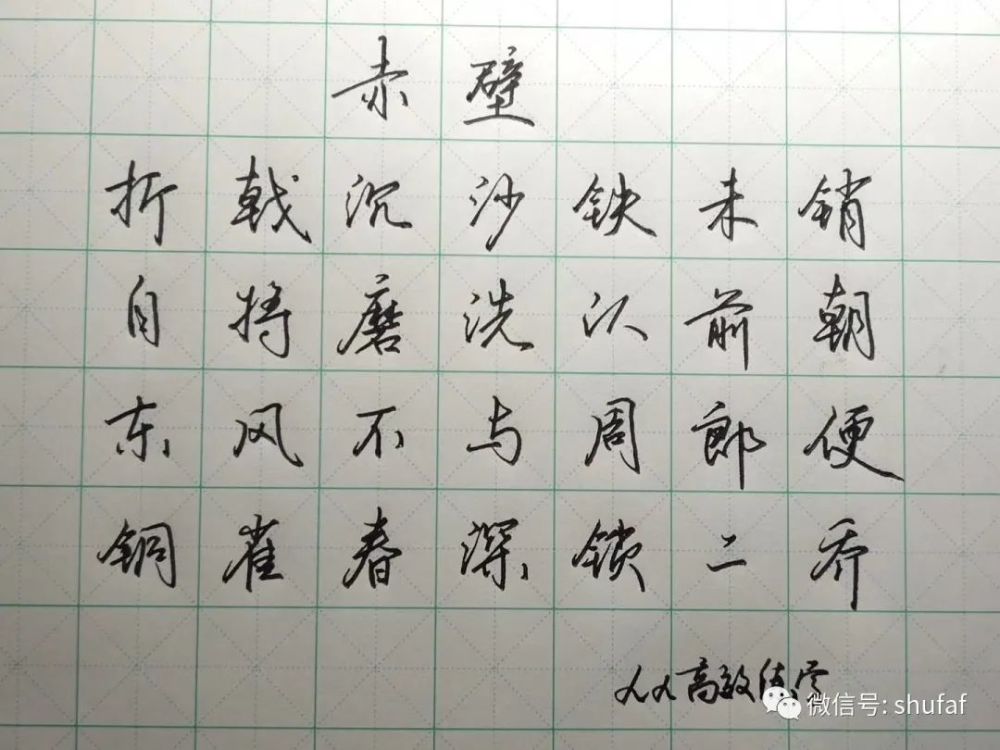 赤壁
折戟沉沙铁未销
自将磨洗认前朝
东风不与周郎便
铜雀春深锁二乔
人人高效练字
微信号: shufaf